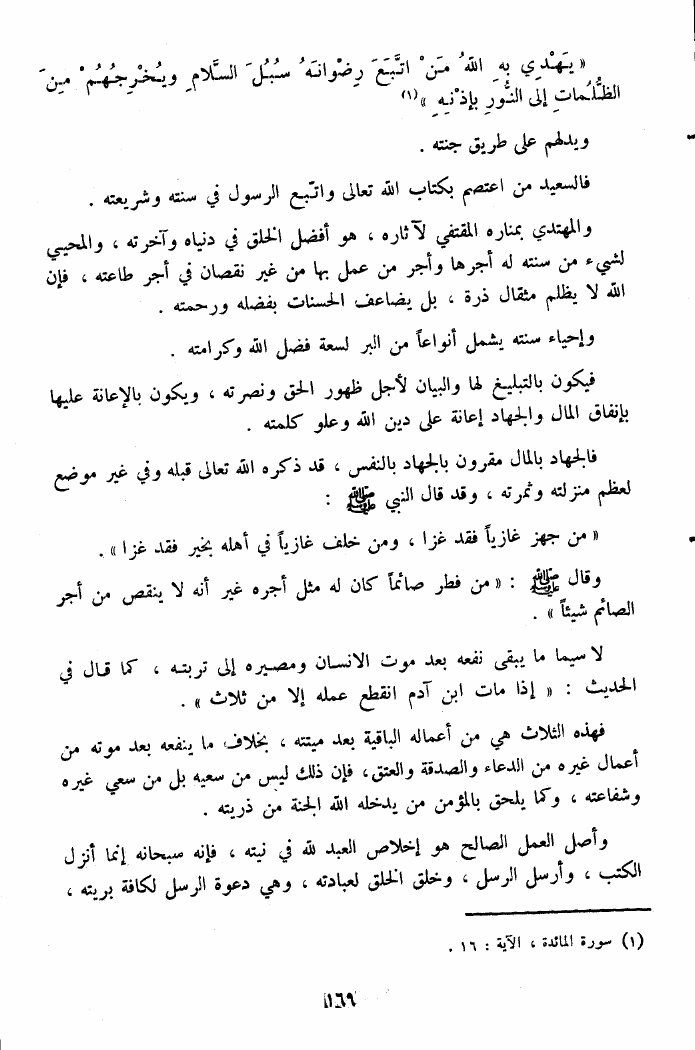 « يَهْدِي بِهِ اللهُ مَنْ اتَّبَعَ رِضْوانَهُ سُبُلَ السَّلامِ ويُخْرِجُهُمْ مِنَ
الظُّلُمَاتِ إلى النُّورِ بإذْنِهِ »(١)
ويدلهم على طريق جنته .
فالسعيد من اعتصم بكتاب الله تعالى واتّبع الرسول في سنته وشريعته .
والمهتدي بمناره المقتفي لآثاره ، هو أفضل الخلق في دنياه وآخرته ، والمحيـي
لشيء من سنته له أجرها وأجر من عمل بها من غير نقصان في أجر طاعته ، فإن
الله لا يظلم مثقال ذرة ، بل يضاعف الحسنات بفضله ورحمته .
وإحياء سنته يشمل أنواعاً من البر لسعة فضل الله وكرامته .
فيكون بالتبليغ لها والبيان لأجل ظهور الحق ونصرته ، ويكون بالإعانة عليها
بإنفاق المال والجهاد إعانة على دين الله وعلو كلمته .
فالجهاد بالمال مقرون بالجهاد بالنفس ، قد ذكره الله تعالى قبله وفي غير موضع
لعظم منزلته وثمرته ، وقد قال النبي ﷺ :
« من جهز غازياً فقد غزا ، ومن خلف غازياً في أهله بخير فقد غزا » .
وقال ﷺ : « من فطر صائماً كان له مثل أجره غير أنه لا ينقص من أجر
الصائم شيئاً » .
لا سيما ما يبقى نفعه بعد موت الانسان ومصيره إلى تربته ، كما قال في
الحديث : « إذا مات ابن آدم انقطع عمله إلا من ثلاث » .
فهذه الثلاث هي من أعماله الباقية بعد ميتته ، بخلاف ما ينفعه بعد موته من
أعمال غيره من الدعاء والصدقة والعتق، فإن ذلك ليس من سعيه بل من سعي غيره
وشفاعته ، وكما يلحق بالمؤمن من يدخله الله الجنة من ذريته .
وأصل العمل الصالح هو إخلاص العبد لله في نيته ، فإنه سبحانه إنما أنزل
الكتب ، وأرسل الرسل ، وخلق الخلق لعبادته ، وهي دعوة الرسل لكافة بريته ،
(١) سورة المائدة ، الآية : ١٦ .
١٦٩